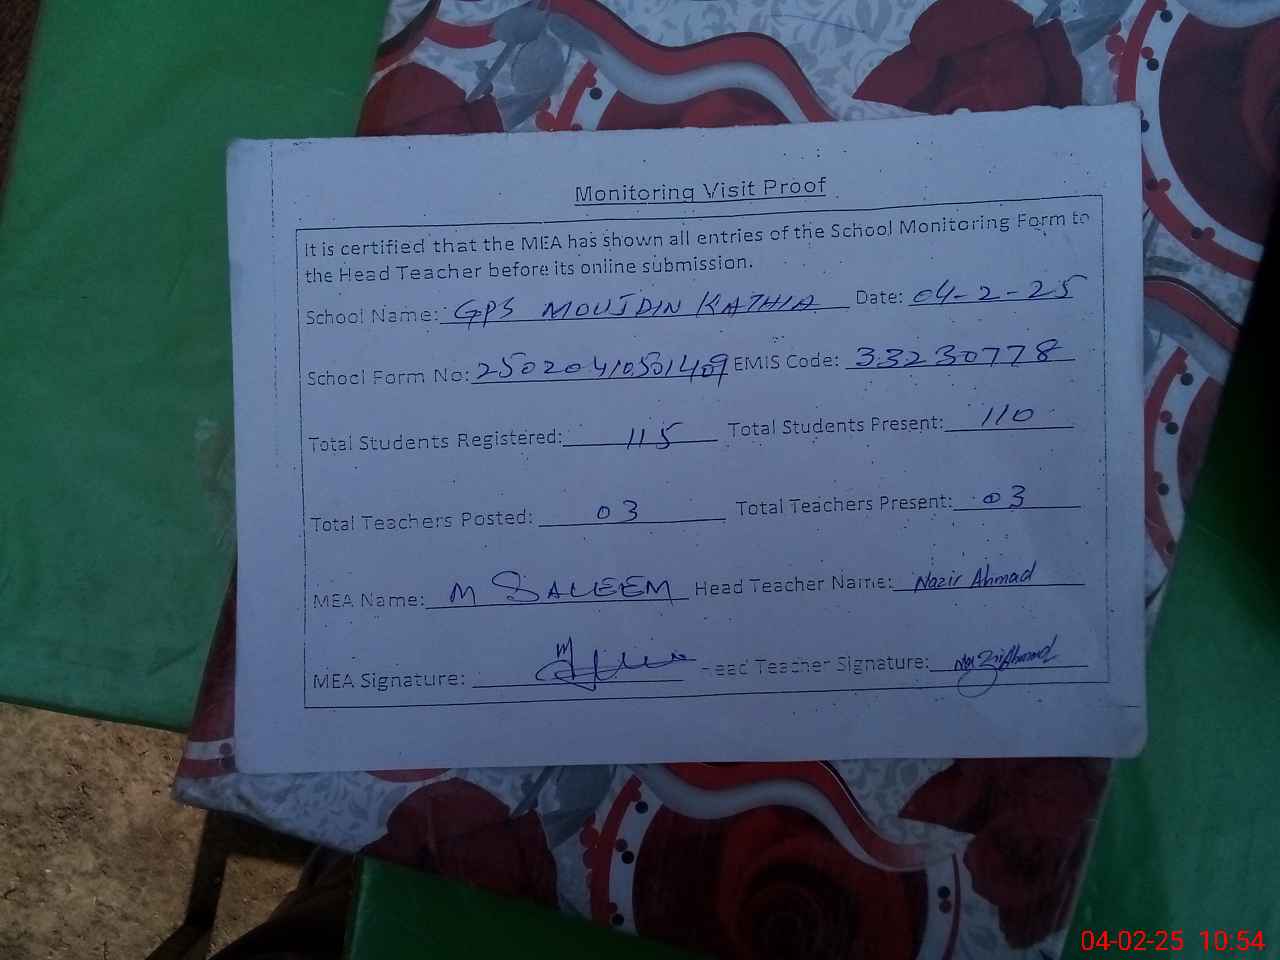 Monitoring Visit Proof
It is certified that the MEA has shown all entries of the School Monitoring Form to
the Head Teacher before its online submission.
School Name: GPS MOUJDIN KATHIA Date: 04-2-25
School Form No: 25020410501409 EMIS Code: 33230778
Total Students Registered: 115 Total Students Present: 110
Total Teachers Posted: 03 Total Teachers Present: 03
MEA Name: M SALEEM Head Teacher Name: Nazir Ahmad
MEA Signature: Head Teacher Signature: Nazir Ahmad
04-02-25 10:54